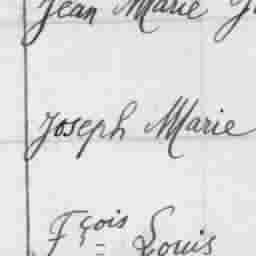 Jean Marie
Joseph Marie
Fçois Louis